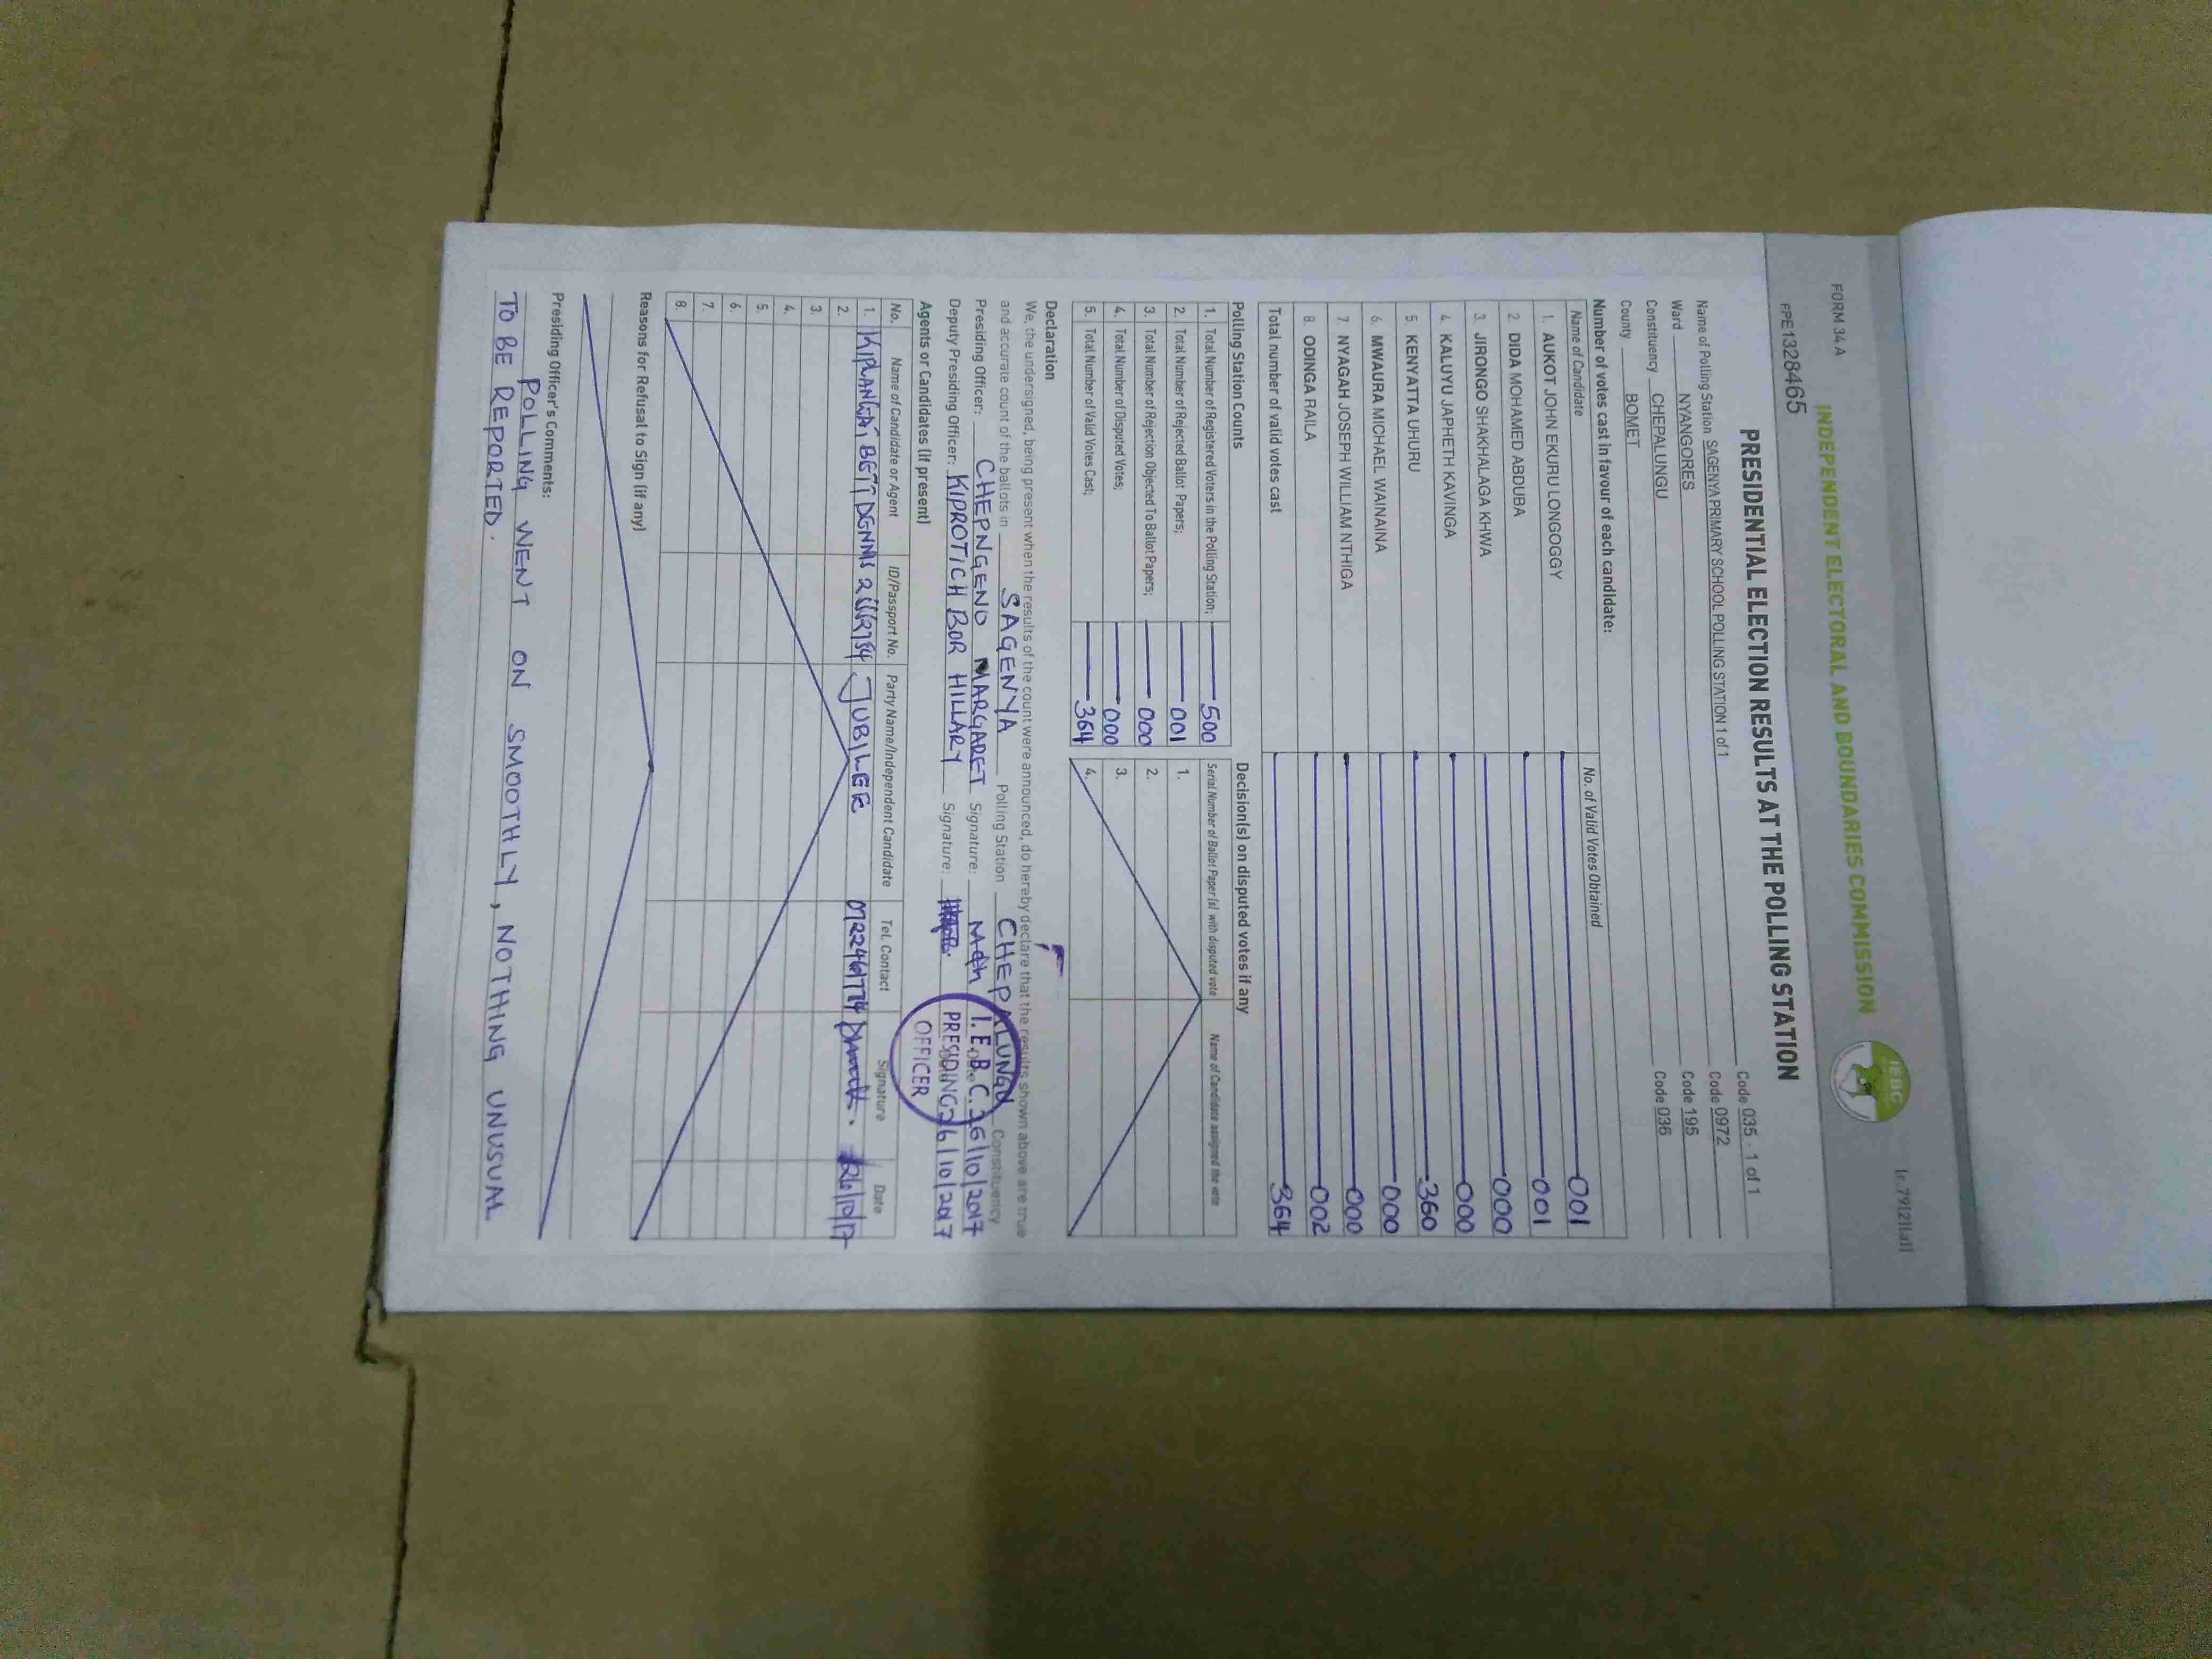 FORM 34 A
INDEPENDENT ELECTORAL AND BOUNDARIES COMMISSION
IEBC
(r.79(2)(a))
PPE1328465
PRESIDENTIAL ELECTION RESULTS AT THE POLLING STATION
Name of Polling Station SAGENYA PRIMARY SCHOOL POLLING STATION 1 of 1 Code 035 - 1 of 1
Code 0972
Ward NYANGORES Code 195
Constituency CHEPALUNGU Code 036
County BOMET
Number of votes cast in favour of each candidate:
Name of Candidate No. of Valid Votes Obtained
1. AUKOT JOHN EKURU LONGOGGY 001
2. DIDA MOHAMED ABDUBA 001
3. JIRONGO SHAKHALAGA KHWA 000
4. KALUYU JAPHETH KAVINGA 000
5. KENYATTA UHURU 360
6. MWAURA MICHAEL WAINAINA 000
7. NYAGAH JOSEPH WILLIAM NTHIGA 000
8. ODINGA RAILA 002
Total number of valid votes cast 364
Polling Station Counts
1. Total Number of Registered Voters in the Polling Station; 500
2. Total Number of Rejected Ballot Papers; 001
3. Total Number of Rejection Objected To Ballot Papers; 000
4. Total Number of Disputed Votes; 000
5. Total Number of Valid Votes Cast; 364
Decision(s) on disputed votes if any
Serial Number of Ballot Paper(s) with disputed vote Name of Candidate assigned the vote
1.
2.
3.
4.
Declaration
We, the undersigned, being present when the results of the count were announced, do hereby declare that the results shown above are true
and accurate count of the ballots in SAGENYA Polling Station CHEPALUNGU Constituency
Presiding Officer: CHEPNGENO MARGARET Signature: Date 26/10/2017
Deputy Presiding Officer: KIPROTICH BOR HILLARY Signature: 26/10/2017
I.E.B.C.
PRESIDING
OFFICER
Agents or Candidates (if present)
No. Name of Candidate or Agent ID/Passport No. Party Name/Independent Candidate Tel. Contact Signature Date
1. KIPLANGAT BETT JUBILEE 26/10/17
2.
3.
4.
5.
6.
7.
8.
Reasons for Refusal to Sign (if any)
Presiding Officer's Comments:
POLLING WENT ON SMOOTHLY, NOTHING UNUSUAL
TO BE REPORTED.